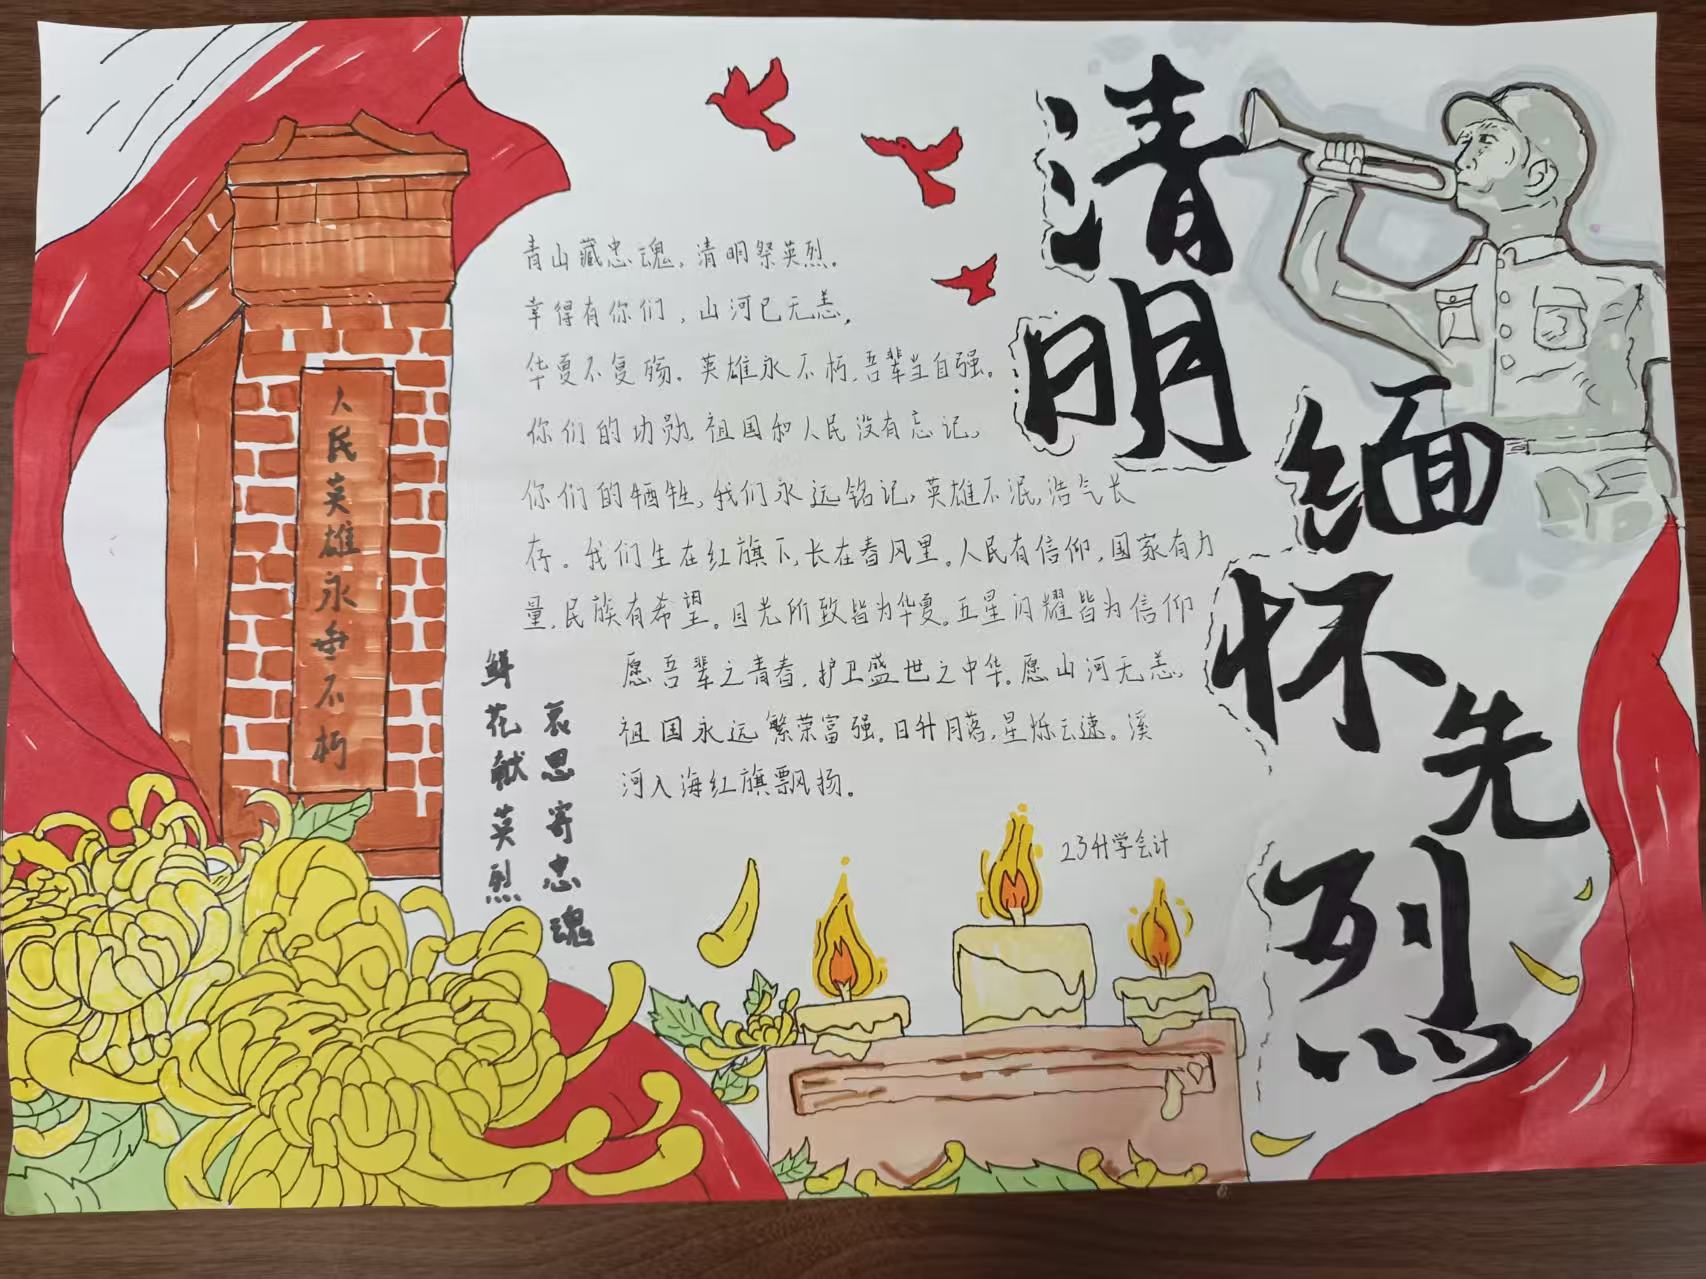 清明
缅怀先烈
人民英雄永垂不朽
青山藏忠魂，清明祭英烈。
幸得有你们，山河已无恙，
华夏不复殇。英雄永不朽，吾辈当自强。
你们的功勋，祖国和人民没有忘记，
你们的牺牲，我们永远铭记，英雄不泯，浩气长
存。我们生在红旗下，长在春风里。人民有信仰，国家有力
量，民族有希望。目光所致皆为华夏。五星闪耀皆为信仰
愿吾辈之青春，护卫盛世之中华。愿山河无恙，
祖国永远繁荣富强。日升月落，星烁云速。溪
河入海红旗飘扬。
鲜花献英烈
哀思寄忠魂
23升学会计